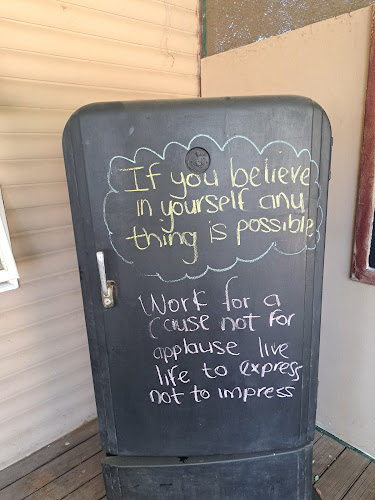 If you believe
in yourself any
thing is possible
Work for a
cause not for
applause live
life to express
not to impress